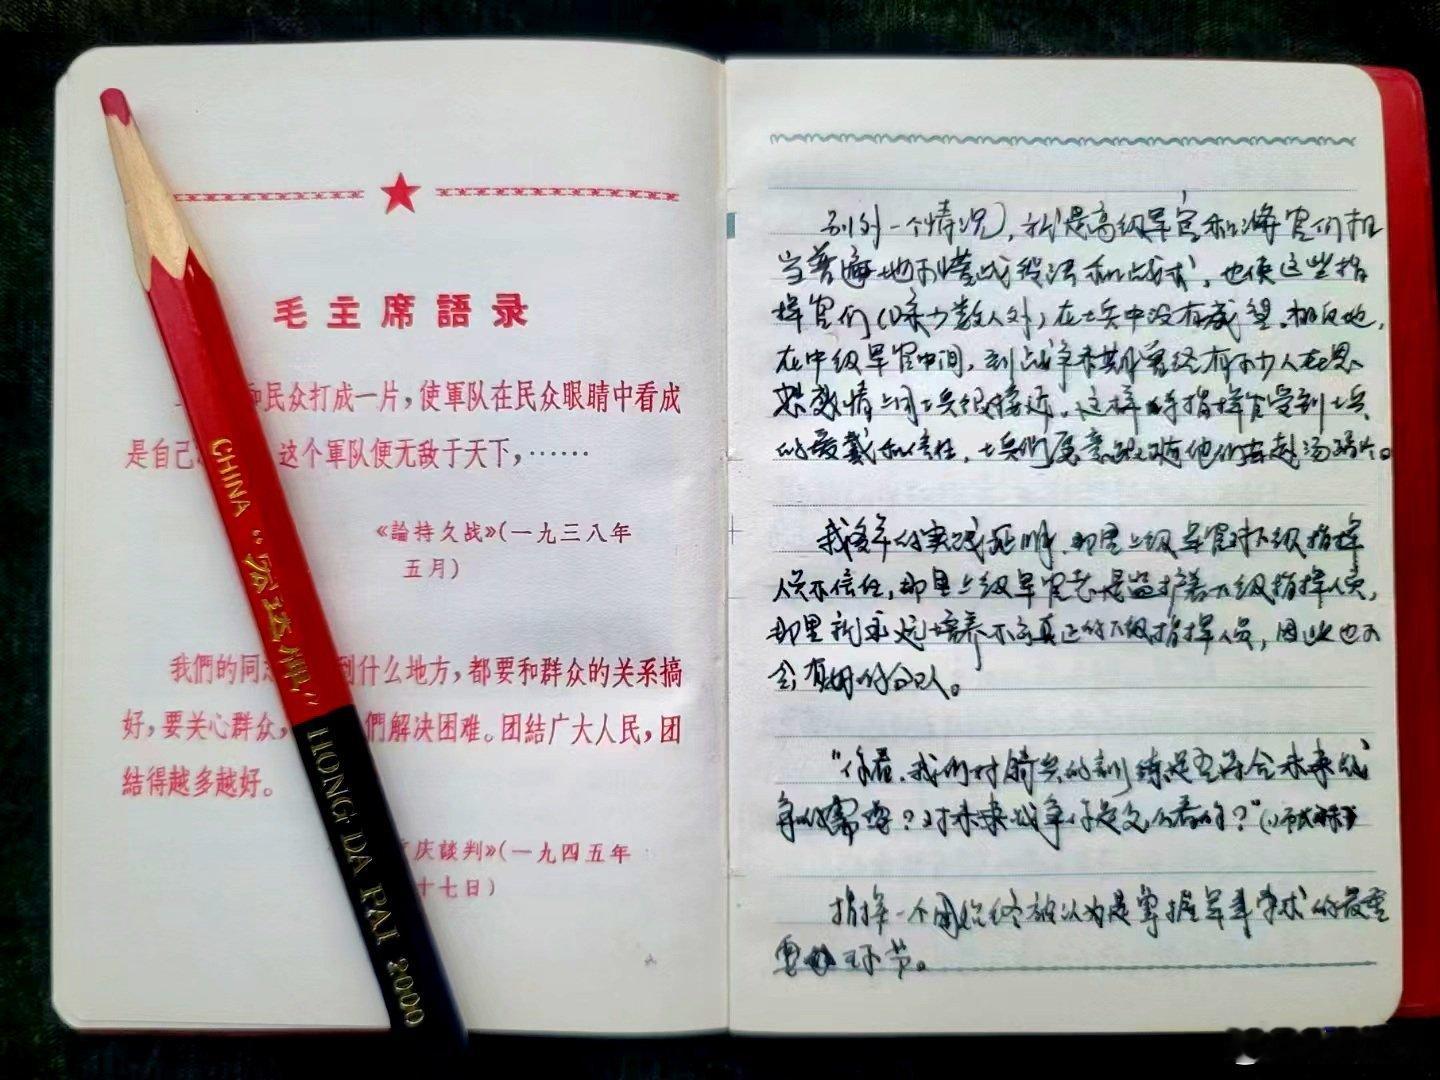 毛主席語录
和民众打成一片，使軍队在民众眼睛中看成
是自己 这个軍队便无敌于天下，……
《論持久战》（一九三八年
五月）
我們的同志 到什么地方，都要和群众的关系搞
好，要关心群众， 們解决困难。团結广大人民，团
結得越多越好。
庆談判》（一九四五年
十七日）
CHINA “宏达牌” HONG DA PAI 2000
另外一个情况，就是高级军官和将官们相
当普遍地不懂战役法和战术，也使这些指
挥官们（除少数人外）在士兵中没有威望。相反地，
在中级军官中间，到战争末期曾经有不少人在思
想感情上同士兵很接近。这样的指挥官受到士兵
的爱戴和信任，士兵们愿意跟随他们去赴汤蹈火。
我多年的实践证明，那里上级军官对下级指挥
人员不信任，那里上级军官老是监护着下级指挥人员，
那里就永远培养不出真正的下级指挥人员，因此也不
会有好的部队。
“你看，我们对骑兵的训练是否符合未来战
争的需要？对未来战争你是怎么看的？”
指挥一个团始终被认为是掌握军事学术的最重
要的环节。